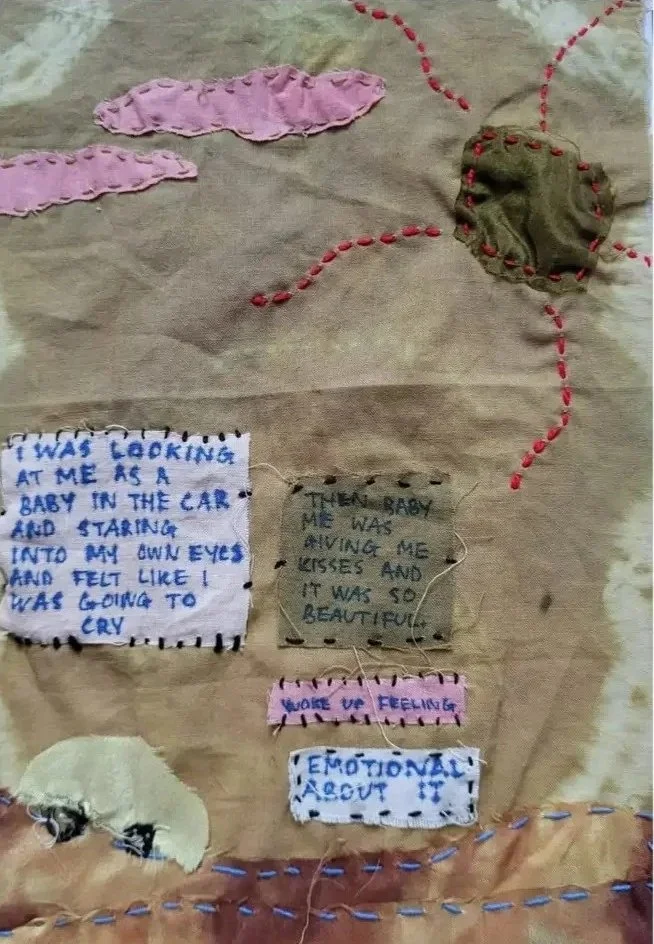 I WAS LOOKING
AT ME AS A
BABY IN THE CAR
AND STARING
INTO MY OWN EYES
AND FELT LIKE I
WAS GOING TO
CRY
THEN BABY
ME WAS
GIVING ME
KISSES AND
IT WAS SO
BEAUTIFUL..
WOKE UP FEELING
EMOTIONAL
ABOUT IT